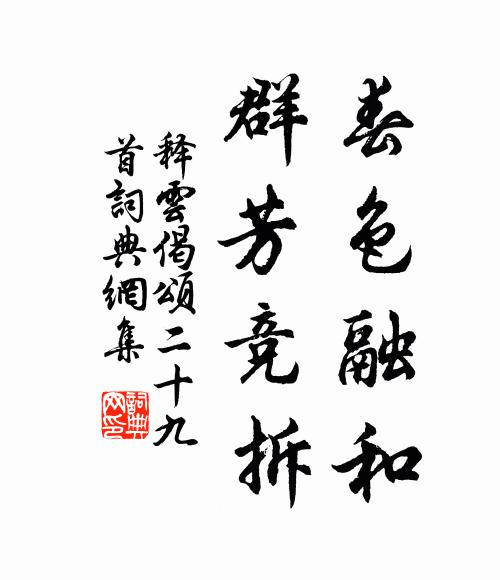 春色融和
群芳竞拆
释雲偈頌二十九
首詞典網集
詞典网印